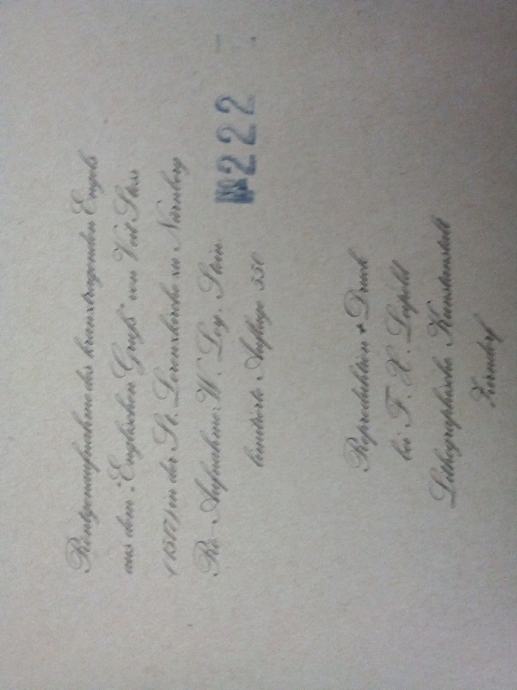 Röntgenaufnahme des kreuztragenden Engels
aus dem "Englischen Gruß" von Veit Stoss
(1517) in der St. Lorenzkirche zu Nürnberg
Rö-Aufnahme: W. Ley, Stein
№ 222
limitierte Auflage 350
Reproduktion + Druck
bei F. X. Leipold
Lithographische Kunstanstalt
Zirndorf